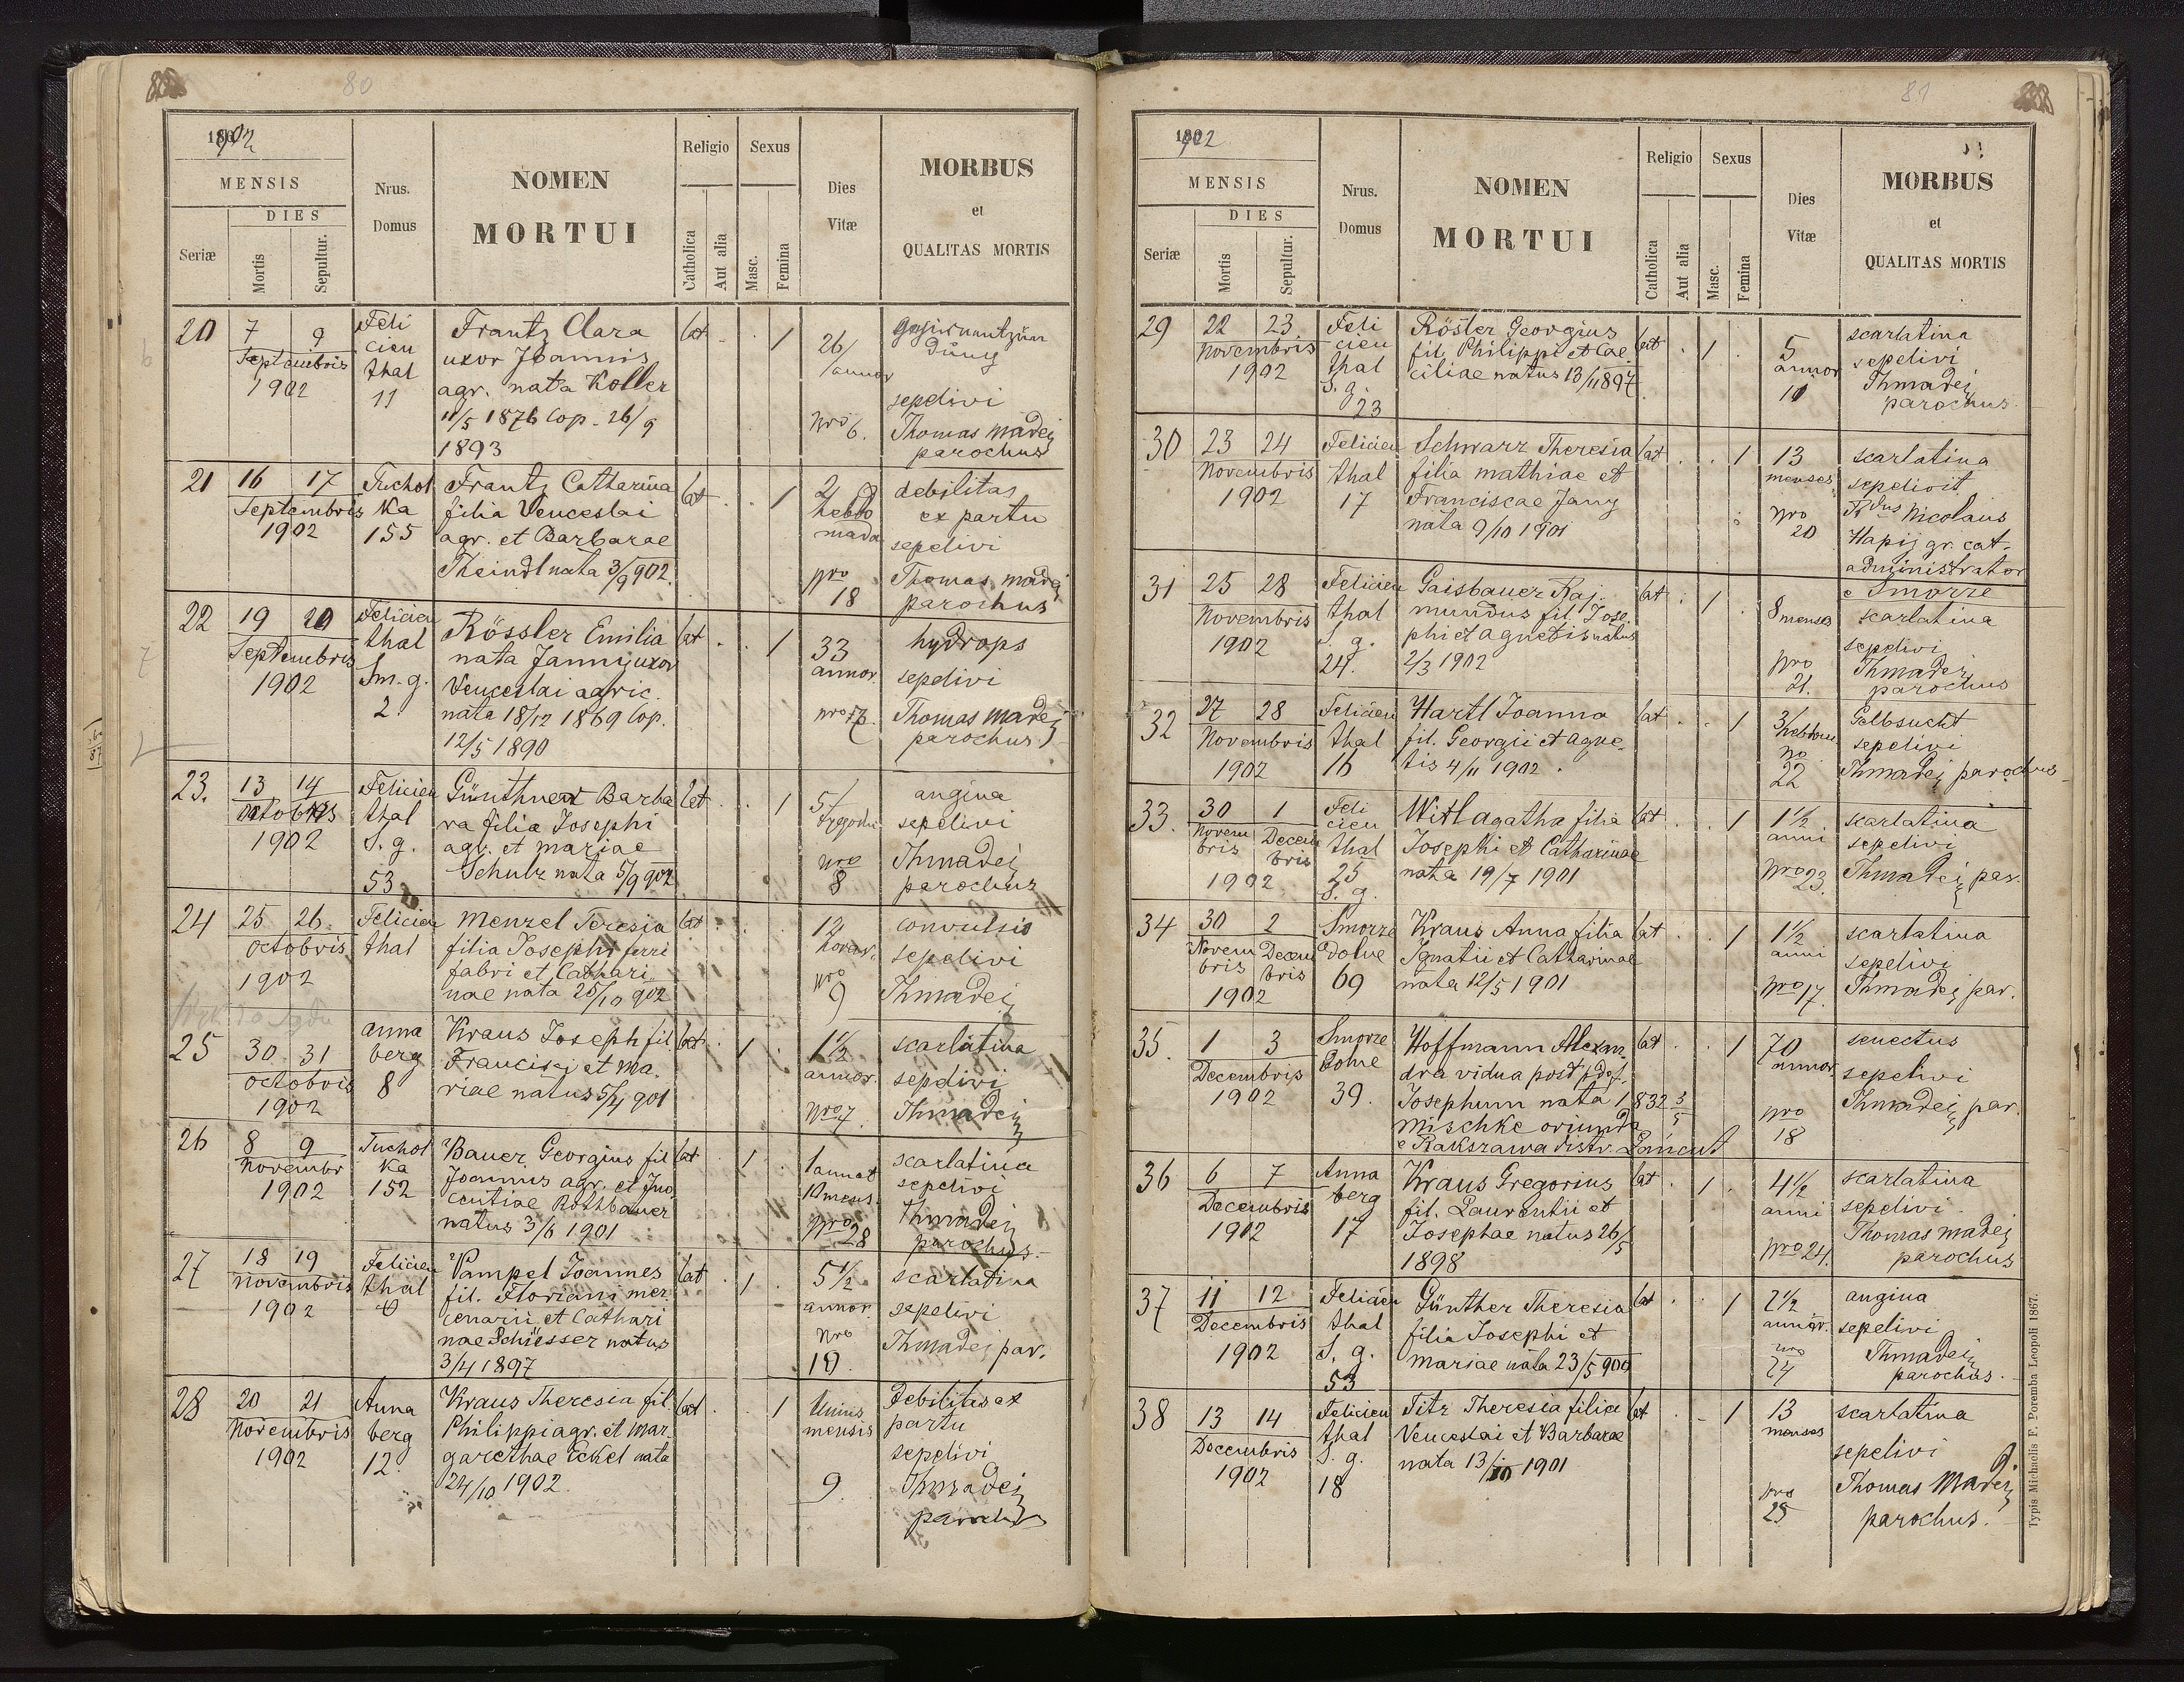 80
1902
MENSIS
DIES
Seriæ
Mortis
Sepultur.
Nrus.
Domus
NOMEN
MORTUI
Religio
Catholica
Aut alia
Sexus
Masc.
Femina
Dies
Vitæ
MORBUS
et
QUALITAS MORTIS
20
7 9
Septembris
1902
Feli
cien
thal
11
Frantz Clara
uxor Joannis
agr. nata Koller
11/5 1876 Cop. 26/9
1893
lat
1
26/
annor
Nro 6.
sepelivi
Thomas Madej
parochus
21
16 17
Septembris
1902
Tuchol
ka
155
Frantz Catharina
filia Venceslai
agr. et Barbarae
Theindl nata 3/9 902.
lat
1
2
hebdo
mada
nro
18
debilitas
ex partu
sepelivi
Thomas Madej
parochus
22
19 20
Septembris
1902
Felicien
thal
Sm. g.
2
Rössler Emilia
nata Janny uxor
Venceslai agric.
nata 18/12 1869 Cop.
12/5 1890
lat
1
33
annor.
nro 17.
hydrops
sepelivi
Thomas Madej
parochus
23.
13 14
octobris
1902
Felicien
thal
S. g.
53
Günthner Barba
ra filia Josephi
agr. et Mariae
Schulz nata 5/9 902
lat
1
5/
tygodni
nro
8
angina
sepelivi
Thmadej
parochus
24
25 26
octobris
1902
Felicien
thal
Menzel Teresia
filia Josephi ferri
fabri et Cathari
nae nata 25/10 902
lat
12
horar.
nro
9
convulsio
sepelivi
Thmadej
25
30 31
octobris
1902
Anna
berg
8
Kraus Joseph fil.
Francisci et Ma.
riae natus 5/4 901
lat
1
1 1/2
annor.
nro 7.
scarlatina
sepelivi
Thmadej
26
8 9
Novembr
1902
Tuchol
ka
152
Bauer Georgius fil
Joannis agr. et Jno
centiae Rothbauer
natus 3/6 1901
lat
1
1 anni et
nro 28
scarlatina
sepelivi
Thmadej
parochus.
27
18 19
Novembris
1902
Felicien
thal
6
Pampel Joannes
fil. Floriani mer.
cenarii et Cathari
nae Schiesser natus
3/4 1897
lat
1
5 1/2
annor.
nro
19.
scarlatina
sepelivi
Thmadej par.
28
20 21
Novembris
1902
Anna
berg
12.
Kraus Theresia fil
Philippi agr. et Mar.
garethae Eckel nata
24/10 1902.
lat
1
Unius
mensis
9.
Debilitas ex
partu
sepelivi
Thmadej
parochus
81
1902
MENSIS
DIES
Seriæ
Mortis
Sepultur.
Nrus.
Domus
NOMEN
MORTUI
Religio
Catholica
Aut alia
Sexus
Masc.
Femina
Dies
Vitæ
MORBUS
et
QUALITAS MORTIS
29
22 23
Novembris
1902
Feli
cien
thal
S. g.
23
Rösler Georgius
fil. Philippi et Cae
ciliae natus 13/11 897
lat
1
5
annor
scarlatina
sepelivi
Thmadej
parochus.
30
23 24
Novembris
1902
Felicien
thal
17
Schwarz Theresia
filia Mathiae et
Franciscae Jany
nata 9/10 1901
lat
1
13
menses
nro
20
scarlatina
sepelivit
Rdus Nicolaus
Hapij gr. cat.
administrator
e Smorze
31
25 28
Novembris
1902
Felicien
thal
S. g.
24.
Gaisbauer Raj.
mundus fil. Jose.
phi et Agnetis natus
2/3 1902
lat
1
8 menses
nro
21.
scarlatina
sepelivi
Thmadej
parochus
32
27 28
Novembris
1902
Felicien
thal
16
Hartl Joanna
fil. Georgii et Agne.
tis 4/11 1902.
lat
1
no
22
Gelbsucht
sepelivi
Thmadej parochus
33.
30 1
Novem
bris
Decem
bris
1902
Feli
cien
thal
25
S. g.
Witl Agatha filia
Josephi et Catharinae
nata 19/7 1901
lat
1
1 1/2
anni
nro 23.
scarlatina
sepelivi
Thmadej par.
34
30 2
Novem
bris
Decem
bris
1902
Smorze
dolne
69
Kraus Anna filia
Ignatii et Catharinae
nata 12/5 1901
lat
1
1 1/2
anni
nro 17.
scarlatina
sepelivi
Thmadej par.
35.
1 3
Decembris
1902
Smorze
dolne
39.
Hoffmann Alexan
dra vidua post pdef.
Josephum nata 1832 3/5
Mischke oriunda
e Rakszawa distr. Łańcut
lat
1
70
annor.
nro
18
senectus
sepelivi
Thmadej par.
36
6 7
Decembris
1902
Anna
berg
17
Kraus Gregorius
fil. Laurentii et
Josephae natus 26/5
1898
lat
1
4 1/2
anni
nro 24.
scarlatina
sepelivi
Thomas Madej
parochus
37
11 12
Decembris
1902
Felicien
thal
S. g.
53
Günther Theresia
filia Josephi et
Mariae nata 23/5 900
lat
1
2 1/2
annor.
nro
24
angina
sepelivi
Thmadej
parochus.
38
13 14
Decembris
1902
Felicien
thal
S. g.
18
Titz Theresia filia
Venceslai et Barbarae
nata 13/10 1901
lat
1
13
menses
nro
25
scarlatina
sepelivi
Thomas Madej
parochus.
Typis Michaelis F. Poremba Leopoli 1867.